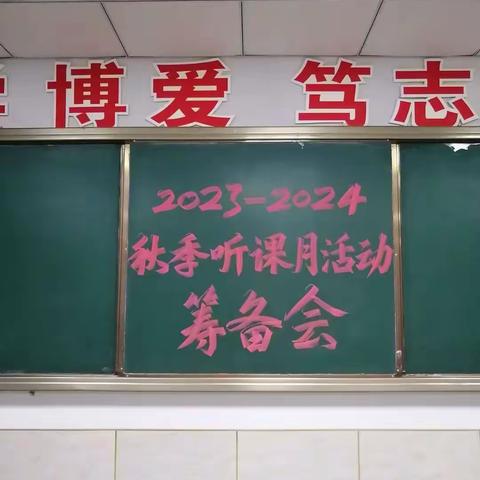 博爱 笃志
2023-2024
秋季听课月活动
筹备会